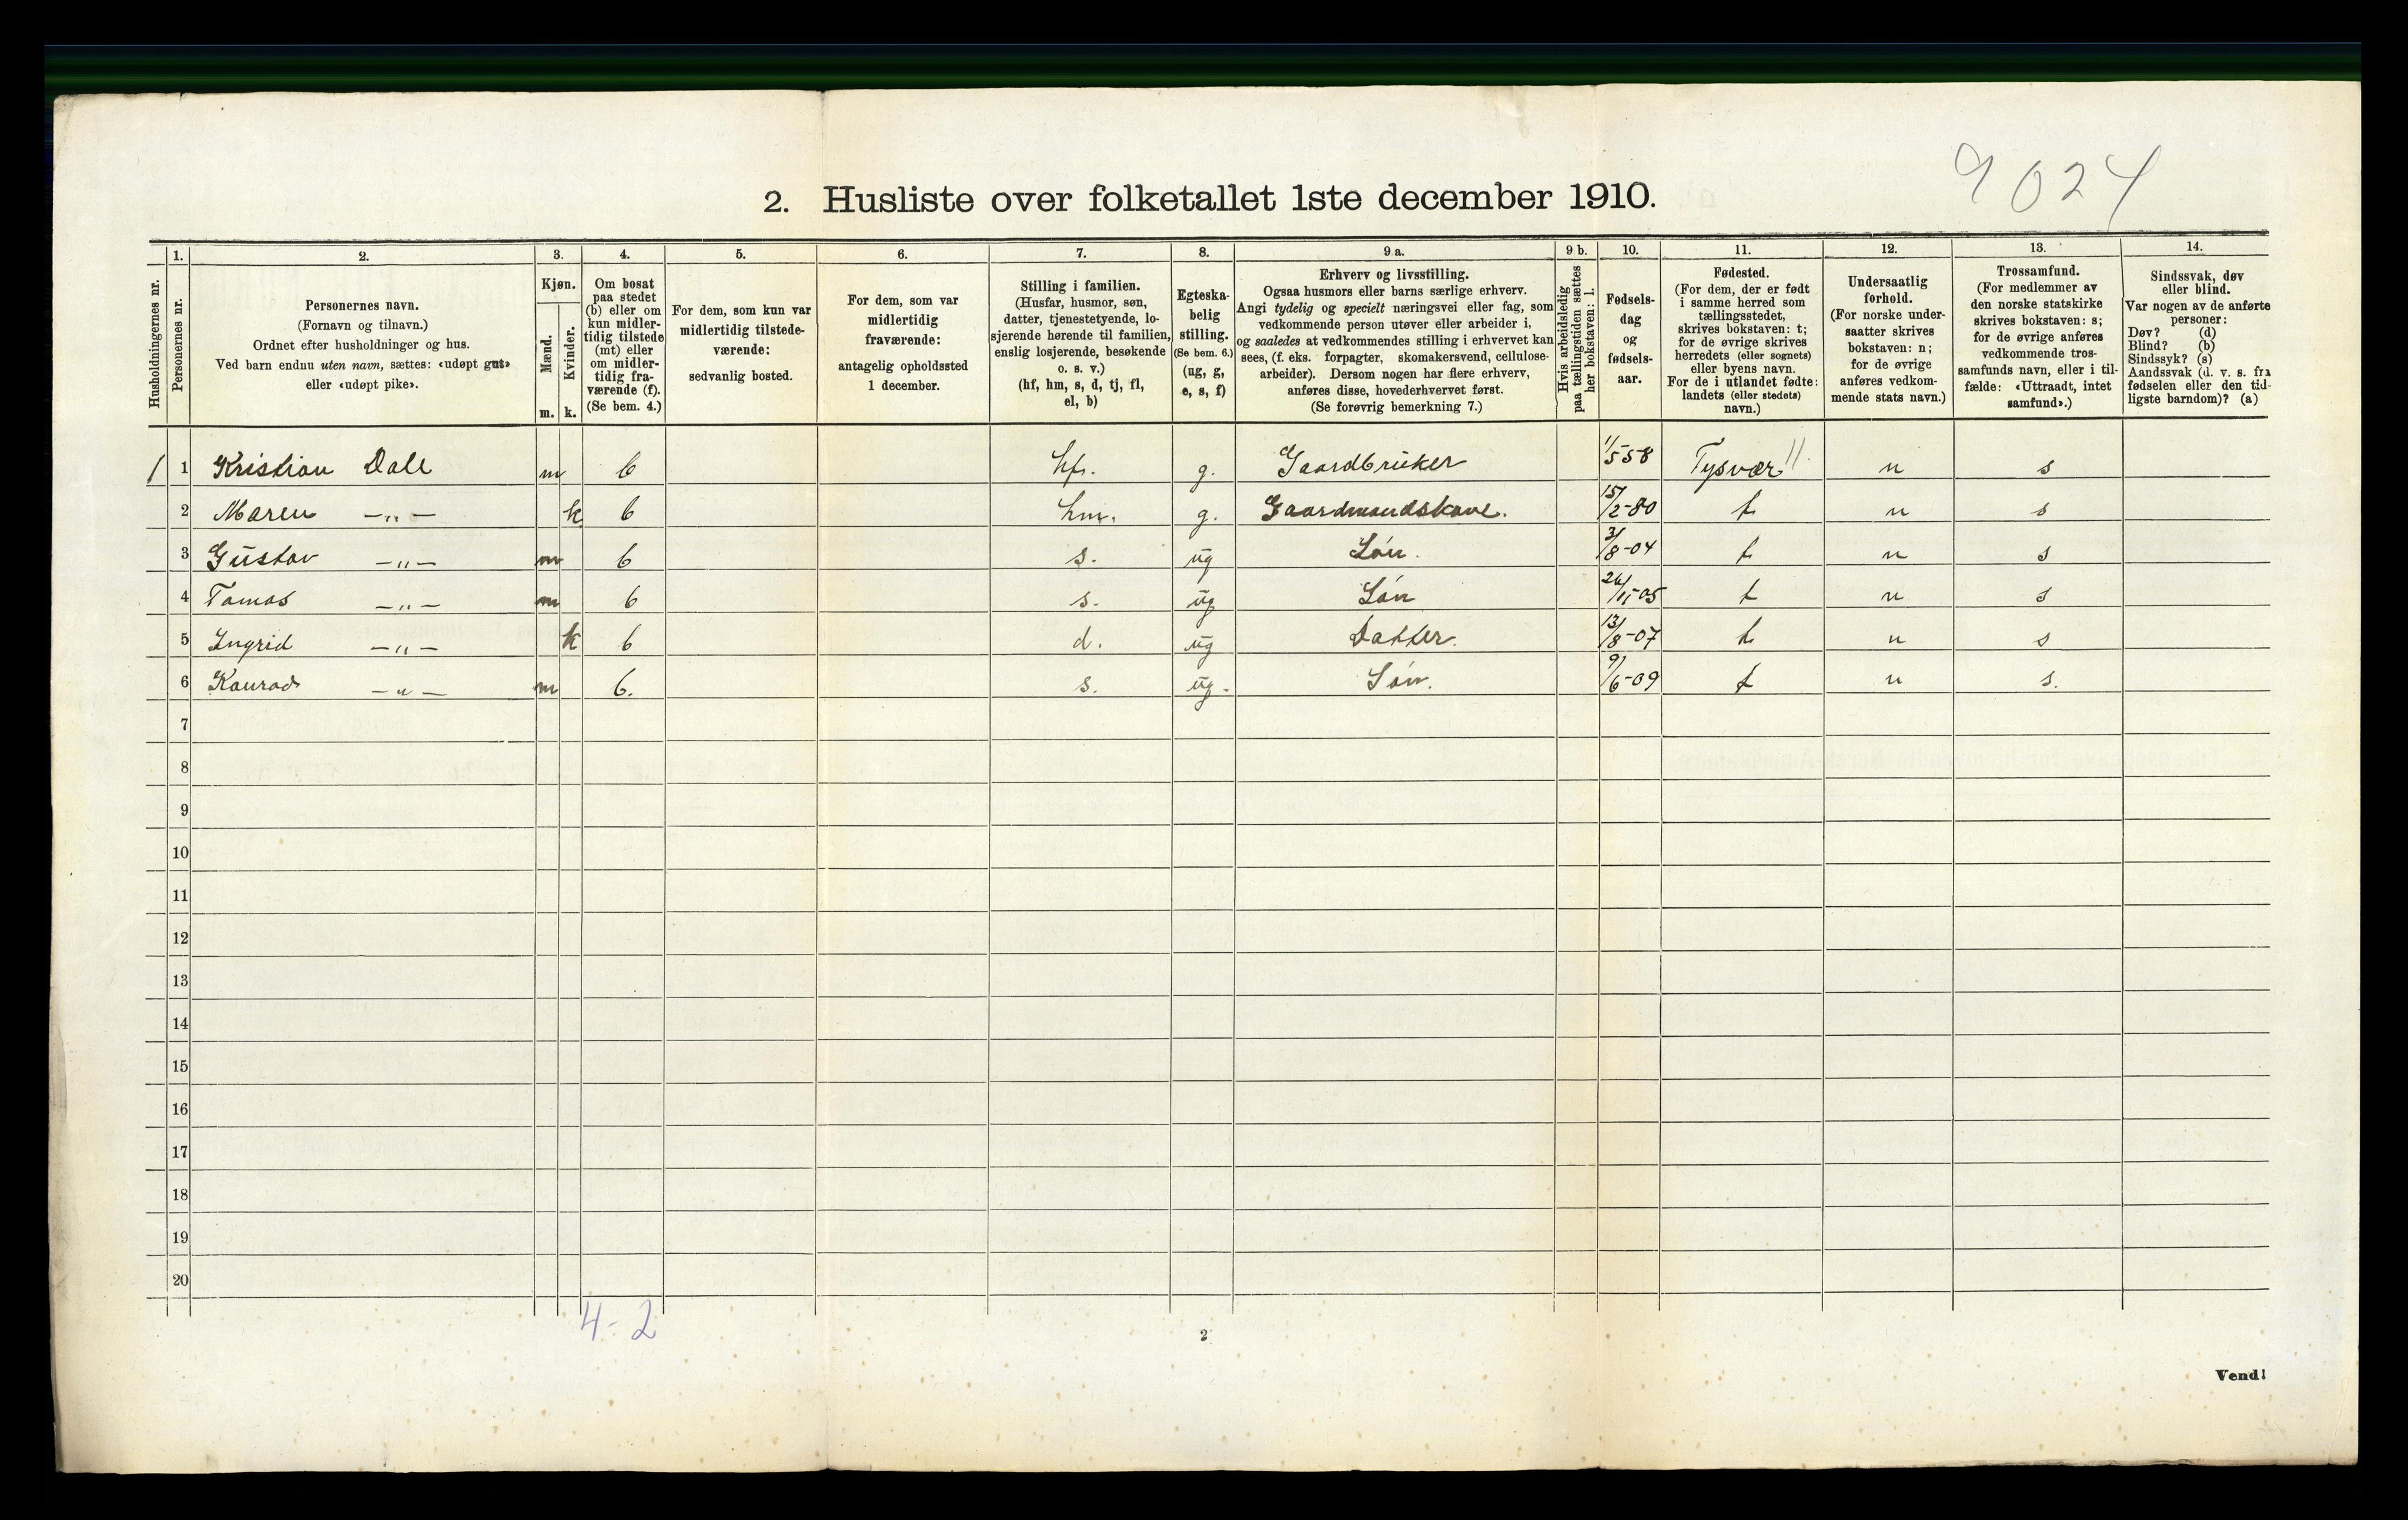 9024
2. Husliste over folketallet 1ste december 1910.
1. 2. 3. 4. 5. 6. 7. 8. 9 a. 9 b. 10. 11. 12. 13. 14.
Husholdningernes nr.
Personernes nr.
Personernes navn.
(Fornavn og tilnavn.)
Ordnet efter husholdninger og hus.
Ved barn endnu uten navn, sættes: «udøpt gut»
eller «udøpt pike».
Kjøn.
Mænd.
Kvinder.
m. k.
Om bosat
paa stedet
(b) eller om
kun midler-
tidig tilstede
(mt) eller
om midler-
tidig fra-
værende (f).
(Se bem. 4.)
For dem, som kun var
midlertidig tilstede-
værende:
sedvanlig bosted.
For dem, som var
midlertidig
fraværende:
antagelig opholdssted
1 december.
Stilling i familien.
(Husfar, husmor, søn,
datter, tjenestetyende, lo-
sjerende hørende til familien,
enslig losjerende, besøkende
o. s. v.)
(hf, hm, s, d, tj, fl,
el, b)
Egteska-
belig
stilling.
(Se bem. 6.)
(ug, g,
e, s, f)
Erhverv og livsstilling.
Ogsaa husmors eller barns særlige erhverv.
Angi tydelig og specielt næringsvei eller fag, som
vedkommende person utøver eller arbeider i,
og saaledes at vedkommendes stilling i erhvervet kan
sees, (f. eks. forpagter, skomakersvend, cellulose-
arbeider). Dersom nogen har flere erhverv,
anføres disse, hovederhvervet først.
(Se forøvrig bemerkning 7.)
Hvis arbeidsledig
paa tællingstiden sættes
her bokstaven: l.
Fødsels-
dag
og
fødsels-
aar.
Fødested.
(For dem, der er født
i samme herred som
tællingsstedet,
skrives bokstaven: t;
for de øvrige skrives
herredets (eller sognets)
eller byens navn.
For de i utlandet fødte:
landets (eller stedets)
navn.)
Undersaatlig
forhold.
(For norske under-
saatter skrives
bokstaven: n;
for de øvrige
anføres vedkom-
mende stats navn.)
Trossamfund.
(For medlemmer av
den norske statskirke
skrives bokstaven: s;
for de øvrige anføres
vedkommende tros-
samfunds navn, eller i til-
fælde: «Uttraadt, intet
samfund».)
Sindssvak, døv
eller blind.
Var nogen av de anførte
personer:
Døv? (d)
Blind? (b)
Sindssyk? (s)
Aandssvak (d. v. s. fra
fødselen eller den tid-
ligste barndom)? (a)
1 1 Kristian Dale m b hf. g. Gaardbruker 1/5 58 Tysvær 11. n s
2 Maren —„— k b hm. g. Gaardmandskone. 15/2-80 t n s
3 Gustav —„— m b s. ug Søn. 3/8-04 t n s
4 Tomas —„— m b s. ug Søn 26/11-05 t n s
5 Ingrid —„— k b d. ug Datter. 13/8-07 t n s
6 Konrad —„— m b. s. ug. Søn. 9/6-09 t n s.
7
8
9
10
11
12
13
14
15
16
17
18
19
20
4-2
2
Vend!